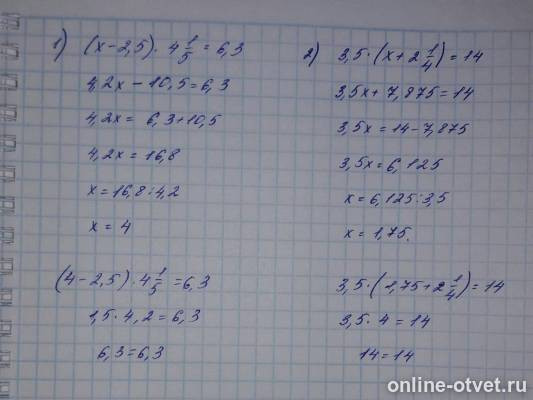 1) (x-2,5)·4 1/5 = 6,3
4,2x - 10,5 = 6,3
4,2x = 6,3+10,5
4,2x = 16,8
x = 16,8 : 4,2
x = 4
(4-2,5)·4 1/5 = 6,3
1,5·4,2 = 6,3
6,3 = 6,3
2) 3,5·(x+2 1/4) = 14
3,5x + 7,875 = 14
3,5x = 14 - 7,875
3,5x = 6,125
x = 6,125 : 3,5
x = 1,75.
3,5·(1,75+2 1/4) = 14
3,5·4 = 14
14 = 14
online-otvet.ru